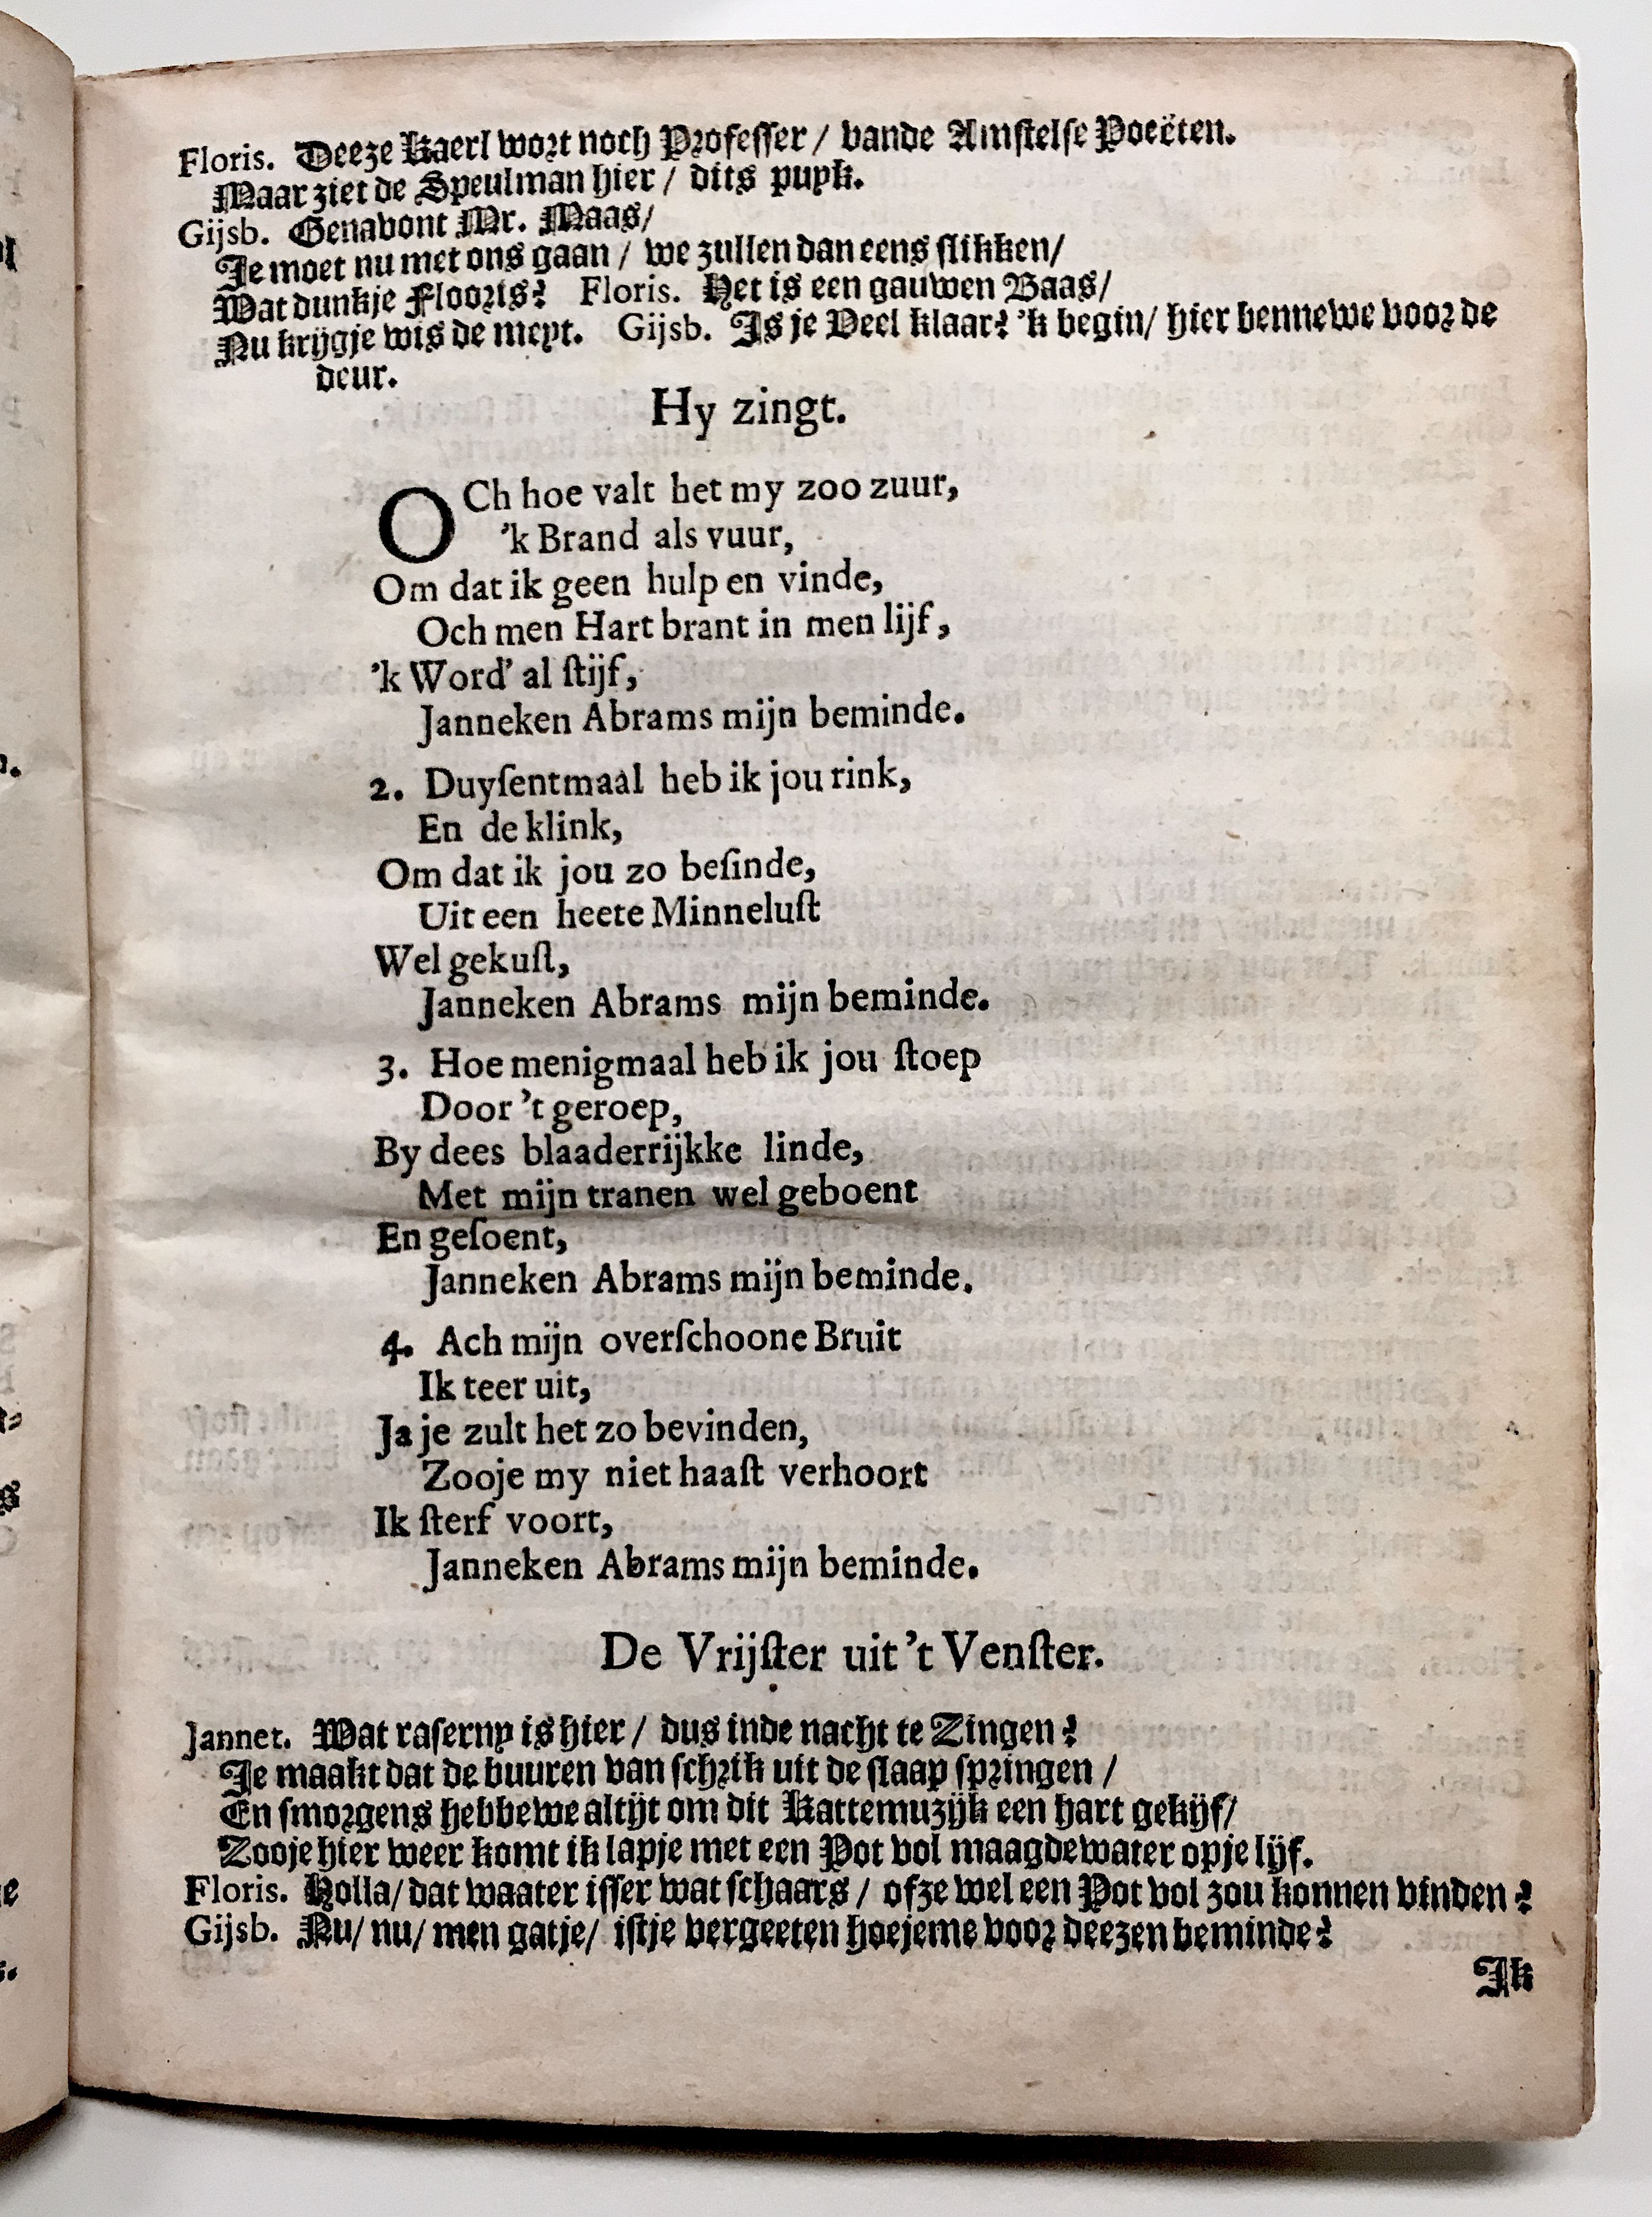 Floris. Deeze Kaerl wort noch Professer / vande Amstelse Poeëten.
Maar ziet de Speulman hier / dits puyk.
Gijsb. Genavont Mr. Maas/
Je moet nu met ons gaan / we zullen dan eens slikken/
Wat dunkje Flooris? Floris. Het is een gauwen Baas/
Nu krijgje wis de meyt. Gijsb. Is je Veel klaar? 'k begin/ hier bennewe voor de
deur.
Hy zingt.
OCh hoe valt het my zoo zuur,
'k Brand als vuur,
Om dat ik geen hulp en vinde,
Och men Hart brant in men lijf,
'k Word' al ſtijf,
Janneken Abrams mijn beminde.
2. Duyſentmaal heb ik jou rink,
En de klink,
Om dat ik jou zo beſinde,
Uit een heete Minneluſt
Wel gekuſt,
Janneken Abrams mijn beminde.
3. Hoe menigmaal heb ik jou ſtoep
Door 't geroep,
By dees blaaderrijkke linde,
Met mijn tranen wel geboent
En geſoent,
Janneken Abrams mijn beminde.
4. Ach mijn overſchoone Bruit
Ik teer uit,
Ja je zult het zo bevinden,
Zooje my niet haaſt verhoort
Ik ſterf voort,
Janneken Abrams mijn beminde.
De Vrijſter uit 't Venſter.
Jannet. Wat raſerny is hier / dus inde nacht te Zingen?
Je maakt dat de buuren van ſchrik uit de ſlaap ſpringen /
En ſmorgens hebbewe altijt om dit Kattemuzijk een hart gekijf/
Zooje hier weer komt ik lapje met een Pot vol maagdewater opje lijf.
Floris. Holla/ dat waater iſſer wat ſchaars / ofze wel een Pot vol zou konnen vinden?
Gijsb. Nu/ nu/ men gatje/ iſtje vergeeten hoejeme voor deezen beminde?
Ik